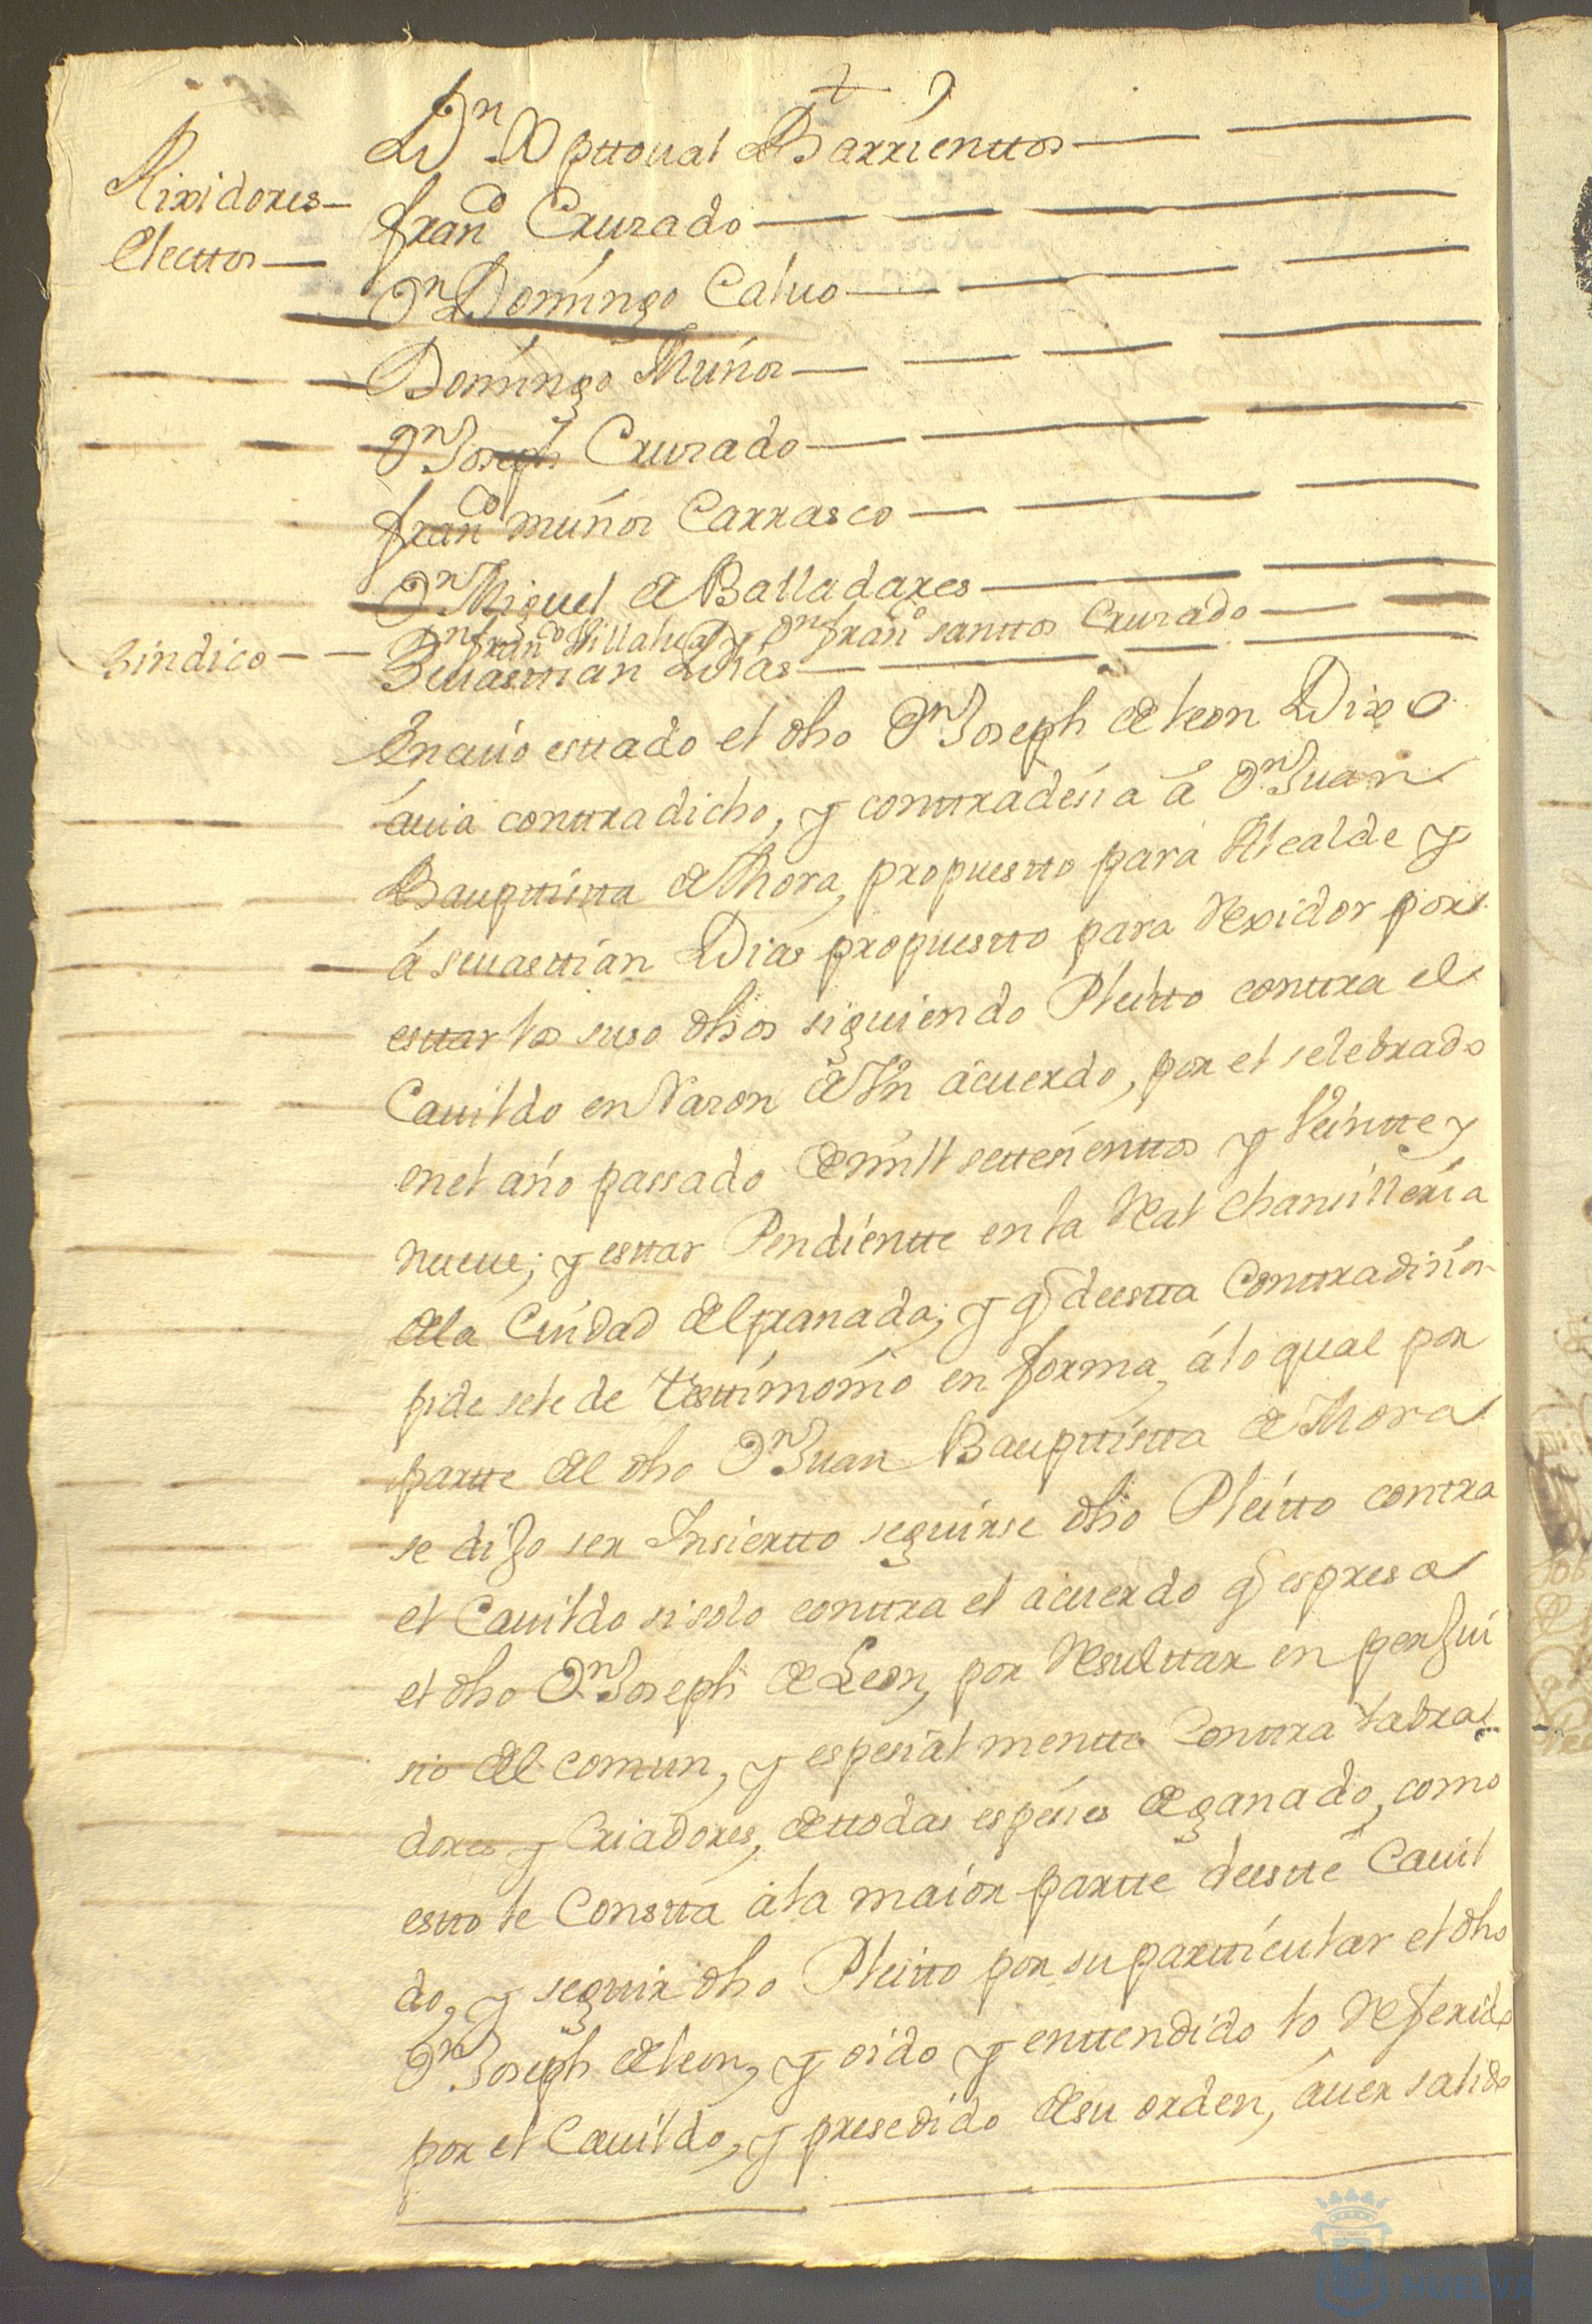 Dn Xpttoual Barrienttos
Rixidores
Franco Cruzado
Electtos
Dn Domingo Caluo
Domingo Muñoz
Dn Joseph Cruzado
Franco muñoz Carrasco
Dn Miguel de Balladares
Dn Franco Villalua y Dn Franco santtos Cruzado
Sindico
Seuasttian Dias
En cuio esttado el dho Dn Joseph de leon Dixo
áuia conttradicho, y conttradesía â Dn Juan
Baupttistta de Mora, propuestto para Alcalde y
á seuasttián Dias propuestto para Rexidor por
esttar los suso dhos siguiendo Pleitto conttra el
Cauildo en Razon de Vn ácuerdo, por el selebrado
en el año passado de mill settesienttos y Veintte y
nueue; y esttar Pendientte en la Real chansilleria
de la Ciudad de granada; y q deestta Conttradisíon
pide se le de testtimonio en forma, á lo qual por
partte del dho Dn Juan Baupttistta de Mora
se dijo ser Insiertto seguirse dho Pleitto contra
el Cauildo si solo conttra el ácuerdo q espresa
el dho Dn Joseph de Leon, por Resulttar en perjui
sio del comun, y espesialmentte Conttra labra
dores y Criadores, de ttodas espesies de ganado, como
estto le Constta á la maior partte deestte Cauil
do, y seguir dho Pleitto por su partticular el dho
Dn Joseph de leon, y oido y enttendido lo Referido
por el Cauildo, y presedido de su orden, áuer salido
HUELVA